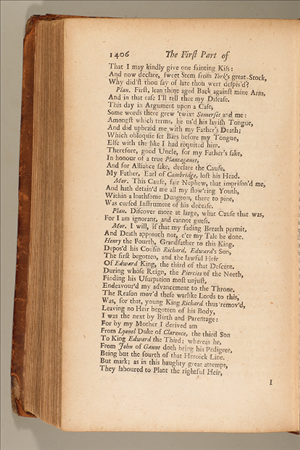 1406 The First Part of
That I may kindly give one fainting Kiss:
And now declare, sweet Stem from York's great Stock,
Why did'st thou say of late thou wert despis'd?
Plan. First, lean thine aged Back against mine Arm,
And in that ease I'll tell thee my Disease.
This day in Argument upon a Case,
Some words there grew 'twixt Somerset and me:
Amongst which terms, he us'd his lavish Tongue,
And did upbraid me with my Father's Death;
Which obloquie set Bars before my Tongue,
Else with the like I had requited him.
Therefore, good Uncle, for my Father's sake,
In honour of a true Plantagenet,
And for Alliance sake, declare the Cause,
My Father, Earl of Cambridge, lost his Head.
Mor. This Cause, fair Nephew, that imprison'd me,
And hath detain'd me all my flow'ring Youth,
Within a loathsome Dungeon, there to pine,
Was cursed Instrument of his decease.
Plan. Discover more at large, what Cause that was,
For I am ignorant, and cannot guess.
Mor. I will, if that my fading Breath permit,
And Death approach not, e'er my Tale be done.
Henry the Fourth, Grandfather to this King,
Depos'd his Cousin Richard, Edward's Son,
The first begotten, and the lawful Heir
Of Edward King, the third of that Descent.
During whose Reign, the Piercies of the North,
Finding his Usurpation most unjust,
Endeavour'd my advancement to the Throne.
The Reason mov'd these warlike Lords to this,
Was, for that, young King Richard thus remov'd,
Leaving no Heir begotten of his Body,
I was the next by Birth and Parentage:
For by my Mother I derived am
From Lyonel Duke of Clarence, the third Son
To King Edward the Third; whereas he,
From John of Gaunt doth bring his Pedigree,
Being but the fourth of that Heroick Line.
But mark; as in this haughty great attempt,
They laboured to Plant the rightful Heir,
I